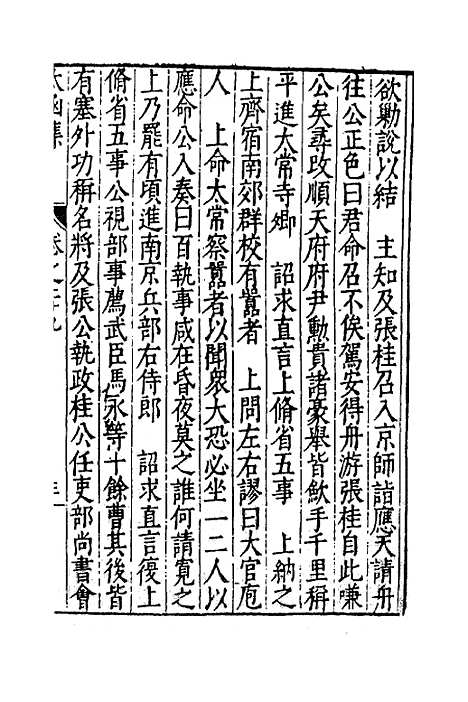 欲勦說以結　主知及張桂召入京師詣應天請舟
往公正色曰君命召不俟駕安得舟游張桂自此嗛
公矣尋改順天府府尹勳貴諸豪舉皆歛手千里稱
平進大常寺卿　詔求直言上脩省五事　上納之
上齊宿南郊群校有囂者　上問左右謬曰大官庖
人　上命太常察囂者以聞衆大恐必坐一二人以
應命公入奏曰百執事咸在昏夜莫之誰何請寬之
上乃罷有頃進南京兵部右侍郎　詔求直言復上
脩省五事公視部事薦武臣馬永等十餘曹其後皆
有塞外功稱名將及張公執政桂公任吏部尚書會
太函集　卷之廿九　三